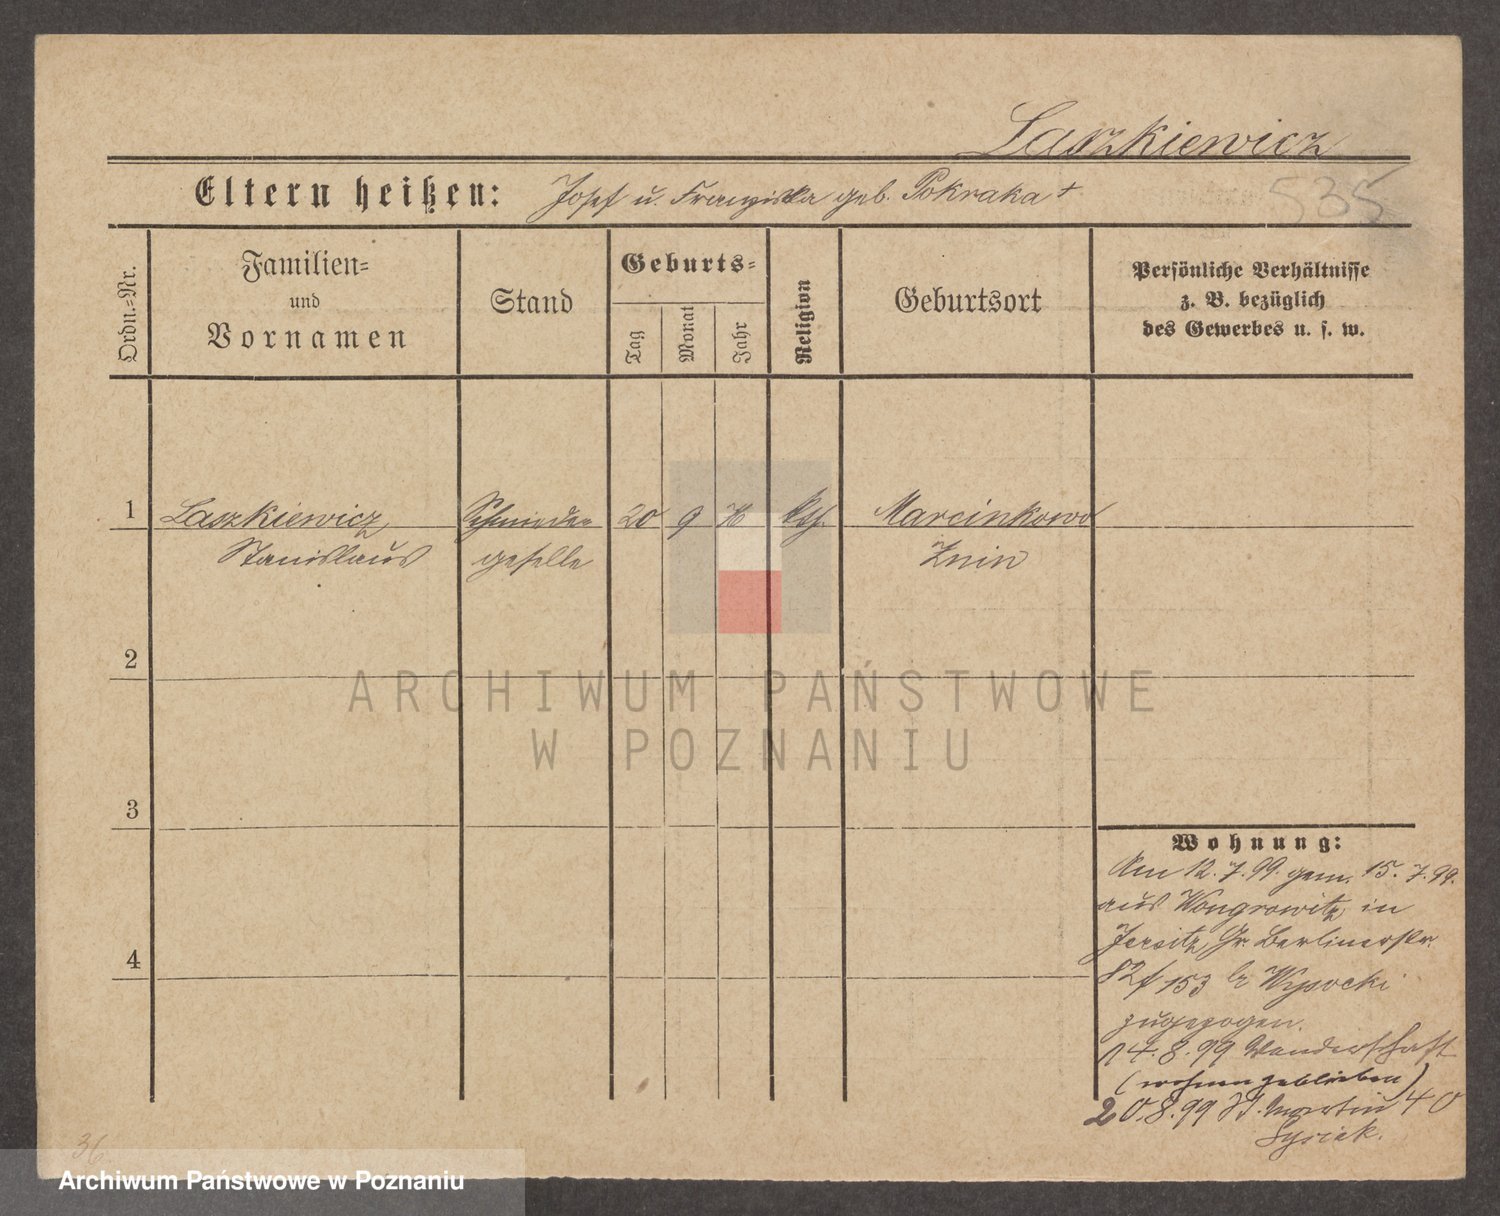 Laszkiewicz
535
Eltern heißen: Josef u. Franziska geb. Pokraka +
Ordn.-Nr.
Familien-
und
Vornamen
Stand
Geburts-
Tag
Monat
Jahr
Religion
Geburtsort
Persönliche Verhältnisse
z. B. bezüglich
des Gewerbes u. s. w.
1 Laszkiewicz Schmiede- 20 9 kth. Marcinkowo
Stanislaus geselle Znin
2
3
4
Wohnung:
Am 12.7.99. gem. 15.7.99.
aus Wongrowitz in
Jersitz, Gr. Berlinerstr.
82/153 b Wysocki
zugezogen.
14.8.99 Wanderschaft
(wohnen geblieben)
20.8.99 St. Martin 40
36
ARCHIWUM PAŃSTWOWE
W POZNANIU
Archiwum Państwowe w Poznaniu